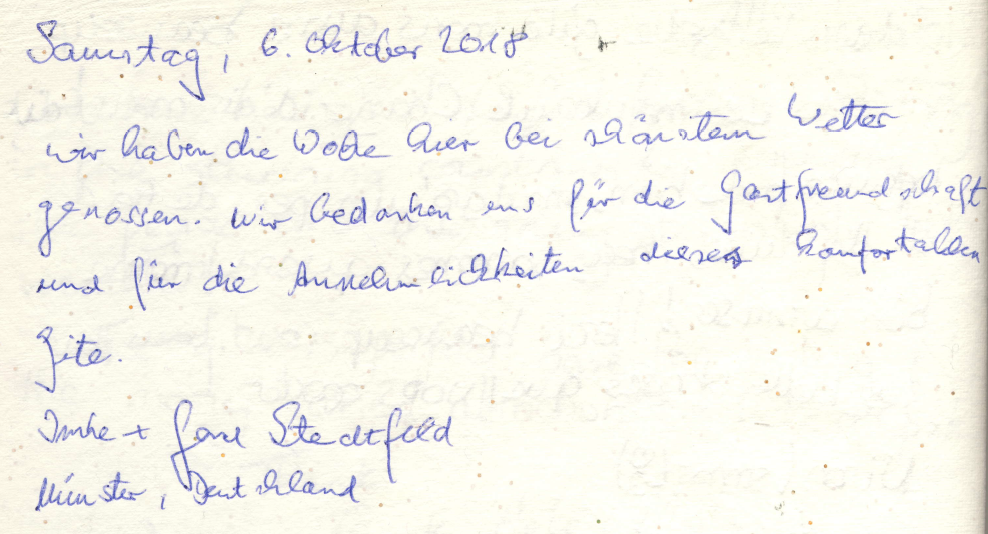 Samstag, 6. Oktober 2018
wir haben die Woche hier bei schönstem Wetter
genossen. Wir bedanken uns für die Gastfreundschaft
und für die Annehmlichkeiten dieses komfortablen
Gite.
Imke + Stedtfeld
Münster, Deutschland